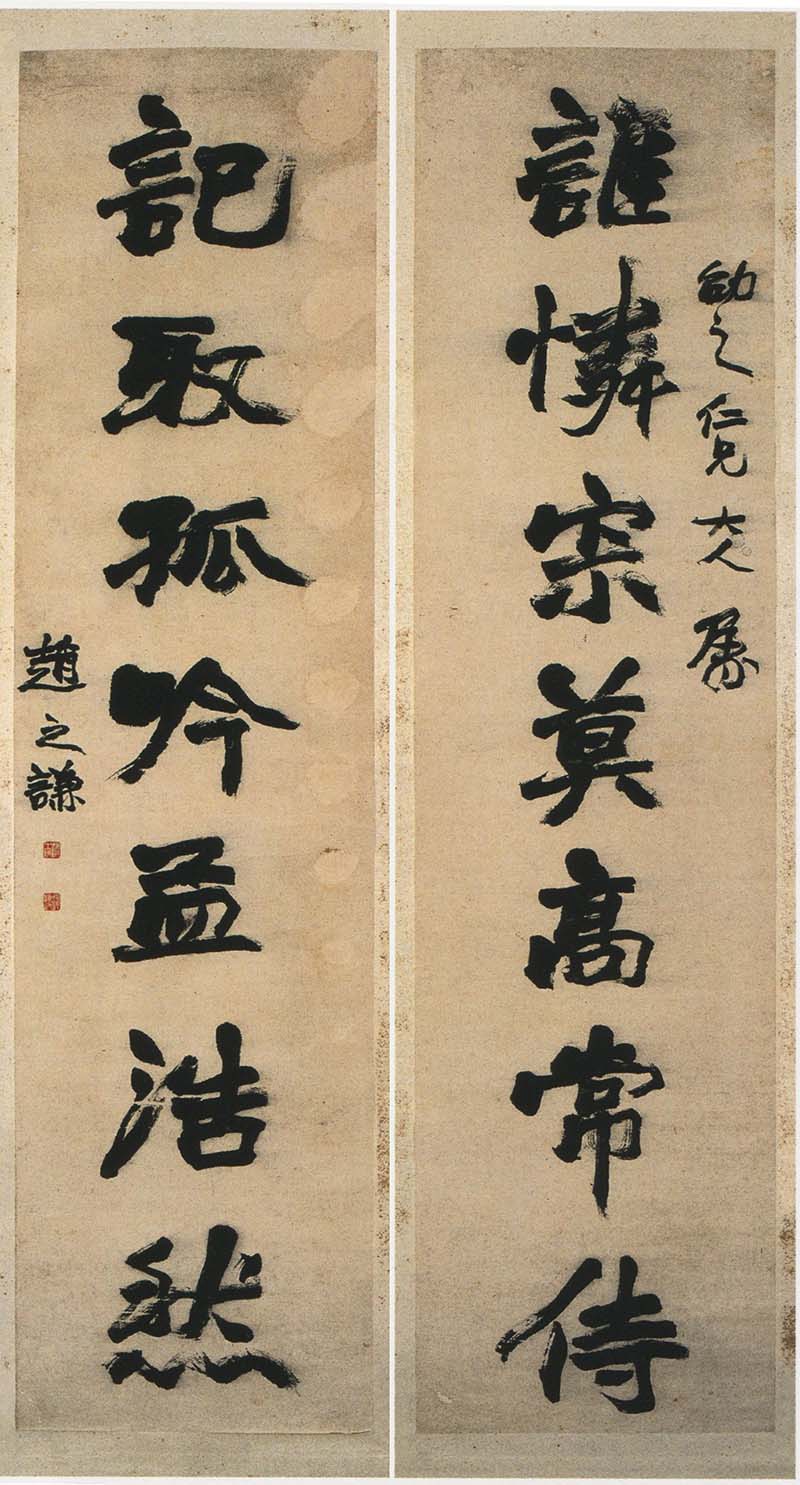 誰憐宗莫高常侍
幼之仁兄大人属
記取孤吟孟浩然
趙之謙